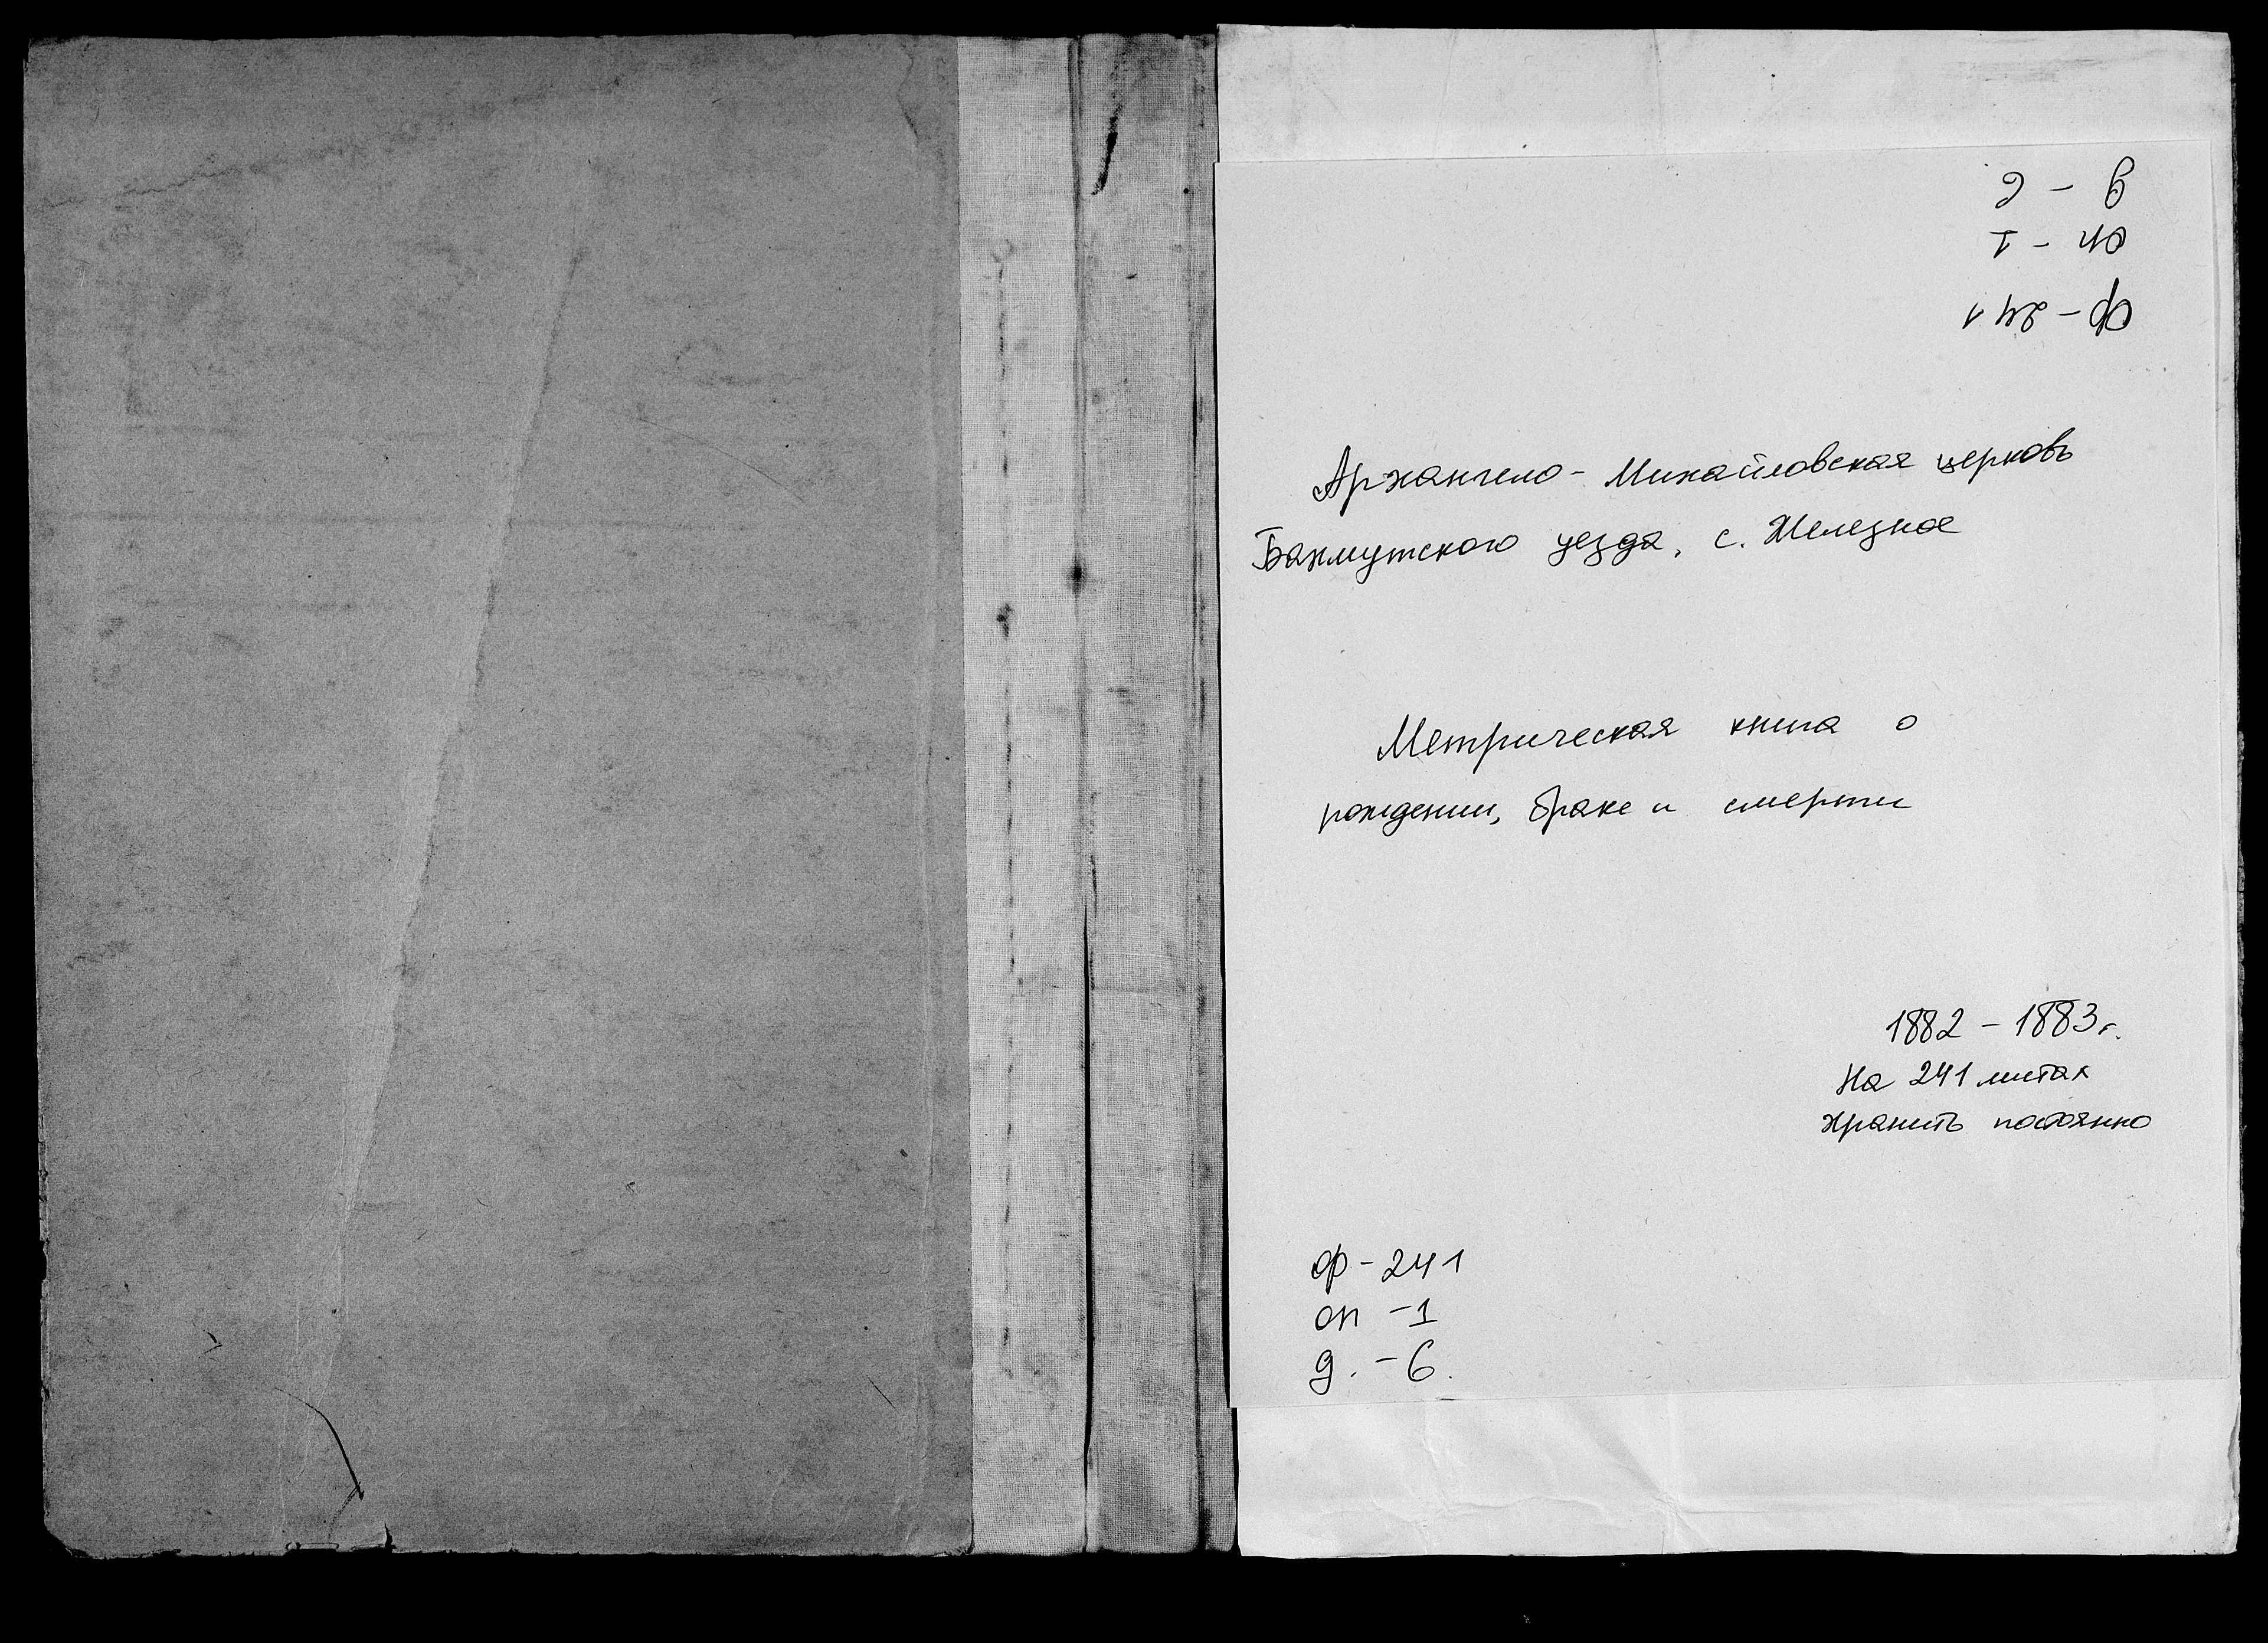 ф - 241
оп - 1
д - 6
Архангело - Михайловская церковь
Бахмутского уезда, с. Железное
Метрическая книга о
рождении, браке и смерти
1882 - 1883 г.
На 241 листах
хранить постоянно
ф - 241
оп - 1
д. - 6.